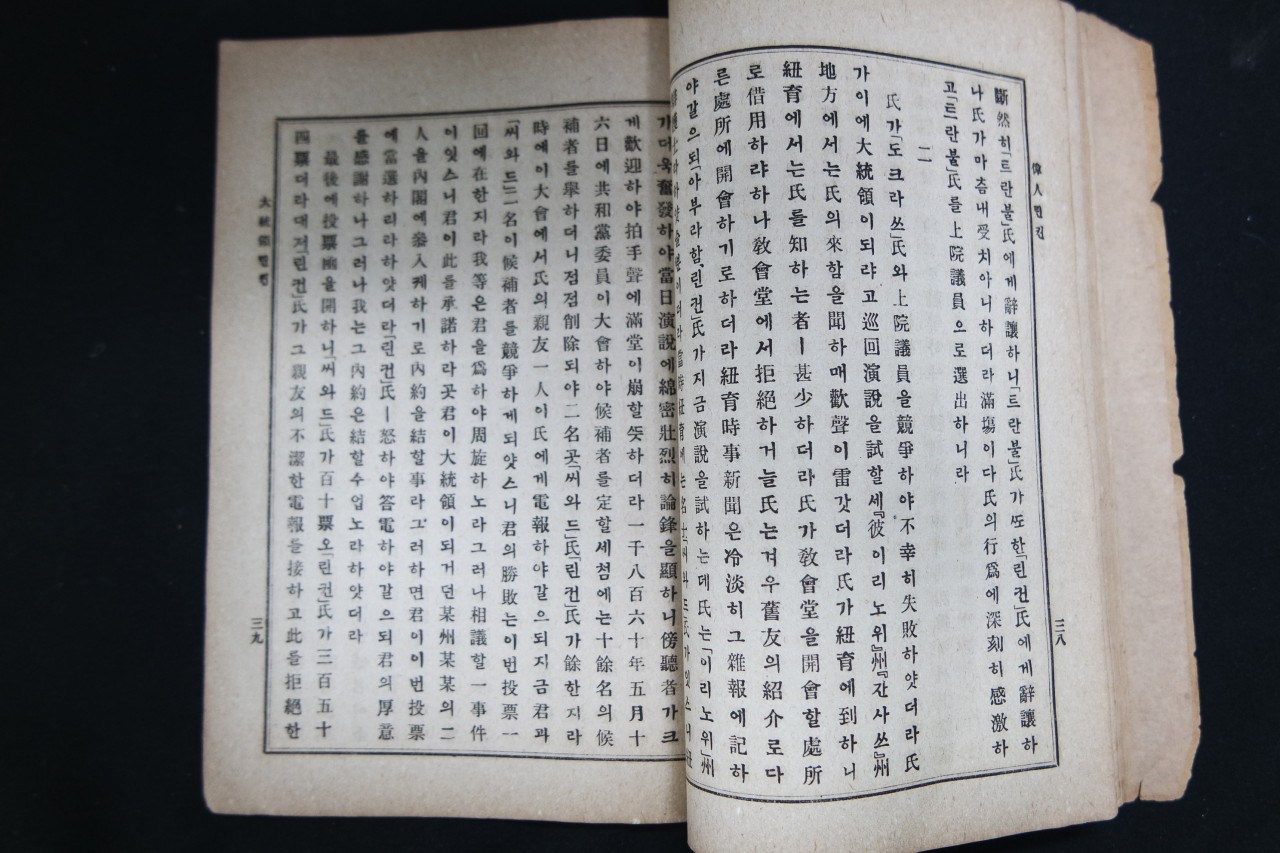 偉人린컨
斷然히「트란불」氏에게辭讓하니「트란불」氏가또한「린컨」氏에게辭讓하
나氏가마츰내受치아니하더라滿塲이다氏의行爲에深刻히感激하
고「트란불」氏를上院議員으로選出하니라
二
氏가「도크라쓰」氏와上院議員을競爭하야不幸히失敗하얏더라氏
가이에大統領이되랴고巡回演說을試할세『彼이리노위』州『잔사쓰』州
地方에서는氏의來함을聞하매歡聲이雷갓더라氏가紐育에到하니
紐育에서는氏를知하는者ㅣ甚少하더라氏가敎會堂을開會할處所
로借用하랴하나敎會堂에서拒絕하거늘氏는겨우舊友의紹介로다
른處所에開會하기로하더라紐育時事新聞은冷淡히그雜報에記하
야갈으되「아부라함、린컨」氏가지금演說을試하는데氏는「이리노위」州
三八
가더욱奮發하야當日演說에綿密壯烈히論鋒을顯하니傍聽者가크
게歡迎하야拍手聲에滿堂이崩할뜻하더라一千八百六十年五月十
六日에共和黨委員이大會하야候補者를定할세쳠에는十餘名의候
補者를舉하더니점점削除되야二名곳「써와드」氏「린컨」氏가餘한지라
時에이大會에서氏의親友一人이氏에게電報하야갈으되지금君과
「써와드」二名이候補者를競爭하게되얏스니君의勝敗는이번投票一
回에在한지라我等은君을爲하야周旋하노라그러나相議할一事件
이잇스니君이此를承諾하라곳君이大統領이되거던某州某某의二
人을內閣에叅入케하기로內約을結할事라그러하면君이이번投票
에當選하리라하얏더라「린컨」氏ㅣ怒하야答電하야갈으되君의厚意
를感謝하나그러나我는그內約은結할수업노라하얏더라
最後에投票凾을開하니「써와드」氏가百十票오「린컨」氏가三百五十
四票더라대져「린컨」氏가그親友의不潔한電報를接하고此를拒絕한
大統領린컨
三九